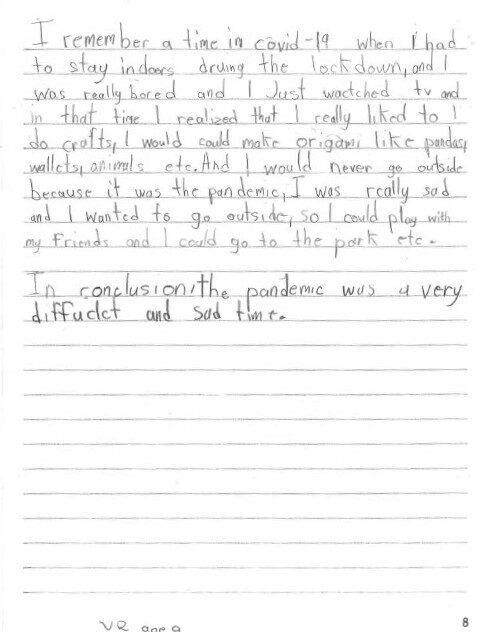 I remember a time in covid-19 when I had
to stay indoors druing the lockdown, and I
was really bored and I Just wactched tv and
in that time I realized that I really liked to I
do crafts, I would could make origami like pandas,
wallets, animals etc. And I would never go outside
because it was the pandemic, I was really sad
and I wanted to go outside, so I could play with
my friends and I could go to the park etc.
In conclusion, the pandemic was a very
diffudct and sad time.
VR age 9
8